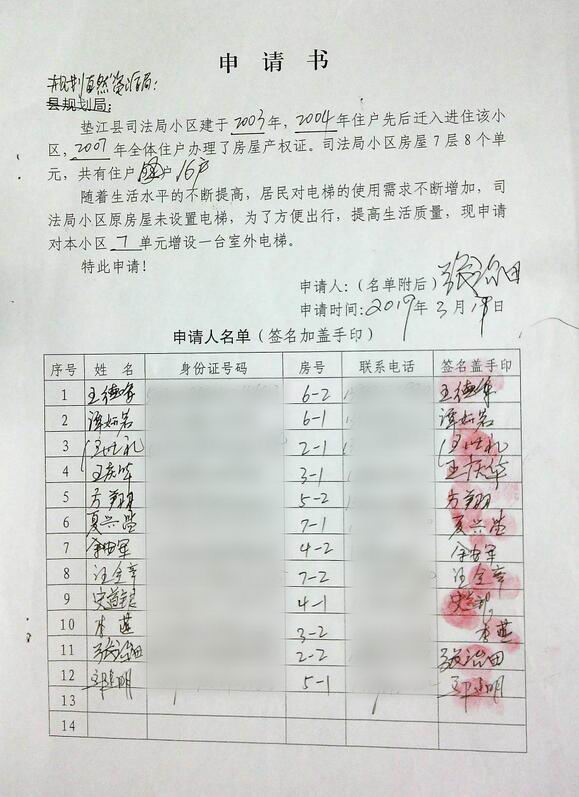 申请书
规划自然资源局：
县规划局：
垫江县司法局小区建于2003年，2004年住户先后迁入进住该小
区，2007年全体住户办理了房屋产权证。司法局小区房屋7层8个单
元，共有住户 户16户
随着生活水平的不断提高，居民对电梯的使用需求不断增加，司
法局小区原房屋未设置电梯，为了方便出行，提高生活质量，现申请
对本小区7单元增设一台室外电梯。
特此申请！
申请人：（名单附后）张治田
申请时间：2019年3月19日
申请人名单（签名加盖手印）
序号 姓 名 身份证号码 房号 联系电话 签名盖手印
1 王德 6-2 王德
2 谭如岩 6-1 谭如岩
3 2-1
4 王庆华 3-1 王庆华
5 方翔 5-2 方翔
6 夏兴莹 7-1 夏兴莹
7 余安军 4-2 余安军
8 汪全章 7-2 汪全章
9 4-1
10 李莲 3-2 李莲
11 张治田 2-2 张治田
12 明 5-1 明
13
14